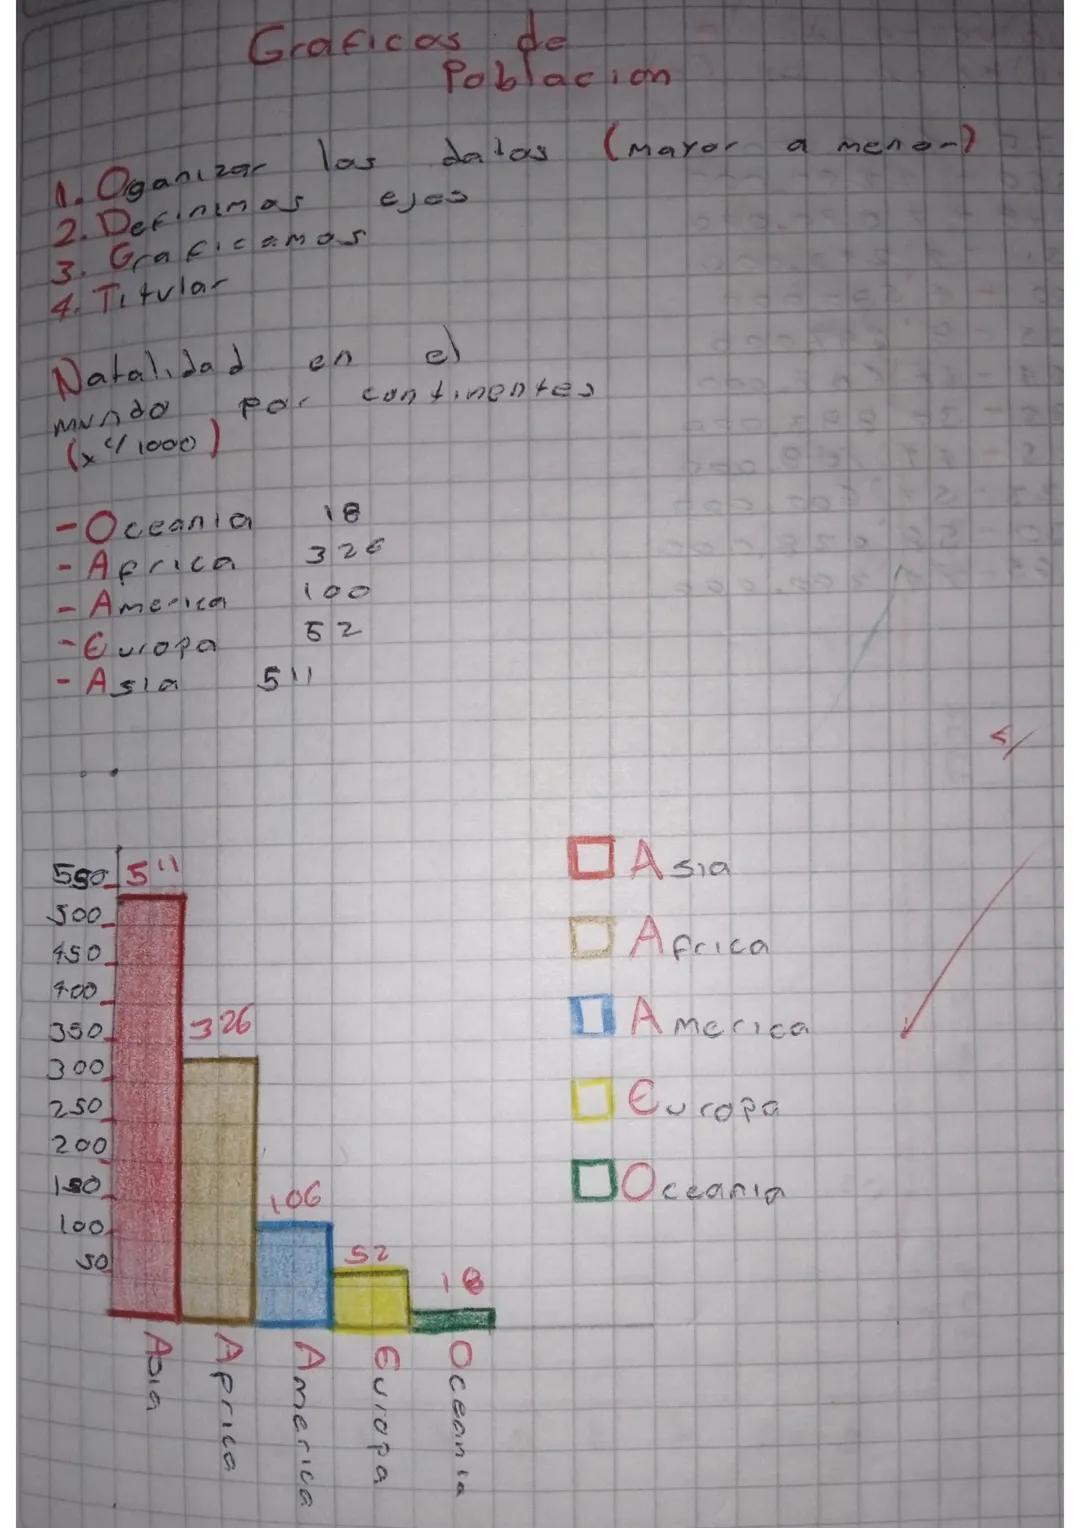 Graficas de
Poblacion
1. Oganizar los datos (mayor a menor)
2. Definimos ejes
3. Graficamos
4. Titular
Natalidad en el
mundo por continentes
(x c/1000)
- Oceania 18
- Africa 326
- America 100
- Europa 52
- Asia 511
550 511
500
450
400
350 326
300
250
200
150 106
100
50 52 18
Asia Africa America Europa Oceania
Asia
Africa
America
Europa
Oceania